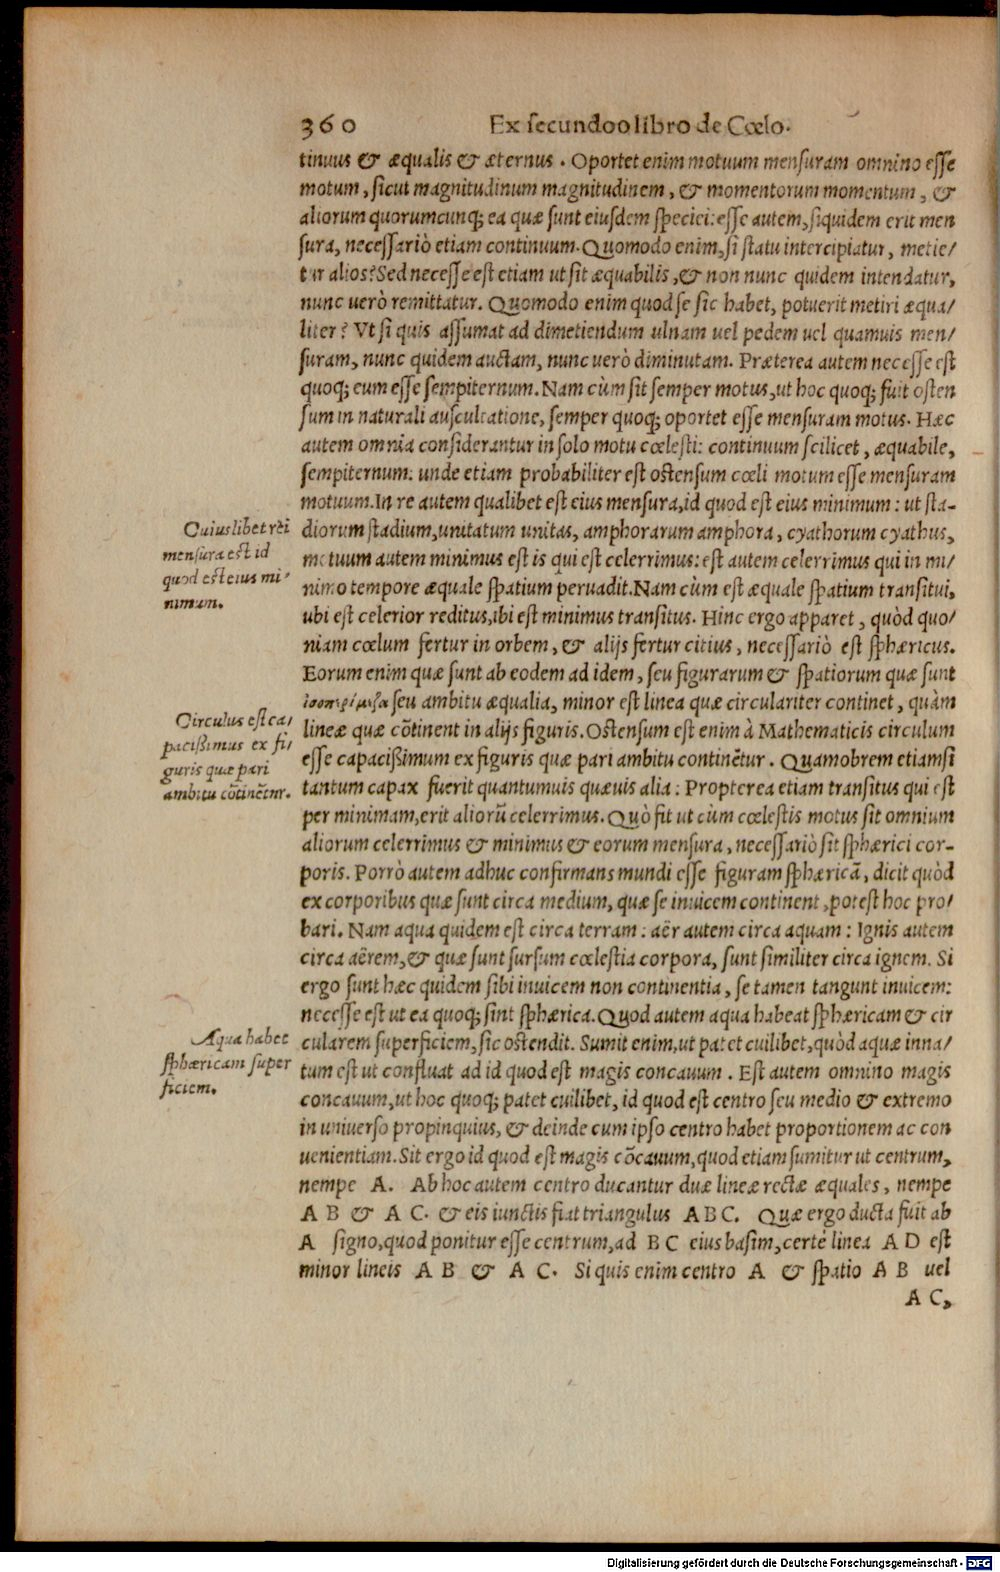 360 Ex secundoo libro de Cœlo.
tinuus & æqualis & æternus. Oportet enim motuum mensuram omnino esse
motum, sicut magnitudinum magnitudinem, & momentorum momentum, &
aliorum quorumcunq; ea quæ sunt eiusdem speciei: esse autem, siquidem erit men
sura, necessariò etiam continuum. Quomodo enim, si statu intercipiatur, metie/
tur alios? Sed necesse est etiam ut sit æquabilis, & non nunc quidem intendatur,
nunc uerò remittatur. Quomodo enim quod se sic habet, potuerit metiri æqua/
liter? Vt si quis assumat ad dimetiendum ulnam uel pedem uel quamuis men/
suram, nunc quidem auctam, nunc uerò diminutam. Præterea autem necesse est
quoq; eum esse sempiternum. Nam cùm sit semper motus, ut hoc quoq; fuit osten
sum in naturali auscultatione, semper quoq; oportet esse mensuram motus. Hæc
autem omnia considerantur in solo motu cœlesti: continuum scilicet, æquabile,
sempiternum: unde etiam probabiliter est ostensum cœli motum esse mensuram
motuum. In re autem qualibet est eius mensura, id quod est eius minimum: ut sta-
Cuiuslibet rei
mensura est id
quod est eius mi/
nimum.
diorum stadium, unitatum unitas, amphorarum amphora, cyathorum cyathus,
motuum autem minimus est is qui est celerrimus: est autem celerrimus qui in mi/
nimo tempore æquale spatium peruadit. Nam cùm est æquale spatium transitui,
ubi est celerior reditus, ibi est minimus transitus. Hinc ergo apparet, quòd quo/
niam cœlum fertur in orbem, & alijs fertur citius, necessariò est sphæricus.
Eorum enim quæ sunt ab eodem ad idem, seu figurarum & spatiorum quæ sunt
ἰσοπερίμετρα seu ambitu æqualia, minor est linea quæ circulariter continet, quàm
Circulus est ca/
pacißimus ex fi/
guris quæ pari
ambitu cōtinētur.
lineæ quæ cōtinent in alijs figuris. Ostensum est enim à Mathematicis circulum
esse capacißimum ex figuris quæ pari ambitu continētur. Quamobrem etiamsi
tantum capax fuerit quantumuis quæuis alia: Propterea etiam transitus qui est
per minimam, erit aliorū celerrimus. Quò fit ut cùm cœlestis motus sit omnium
aliorum celerrimus & minimus & eorum mensura, necessariò sit sphærici cor-
poris. Porrò autem adhuc confirmans mundi esse figuram sphæricā, dicit quòd
ex corporibus quæ sunt circa medium, quæ se inuicem continent, potest hoc pro/
bari. Nam aqua quidem est circa terram: aër autem circa aquam: Ignis autem
circa aërem, & quæ sunt sursum cœlestia corpora, sunt similiter circa ignem. Si
ergo sunt hæc quidem sibi inuicem non continentia, se tamen tangunt inuicem:
necesse est ut ea quoq; sint sphærica. Quod autem aqua habeat sphæricam & cir
Aqua habet
sphæricam super
ficiem.
cularem superficiem, sic ostendit. Sumit enim, ut patet cuilibet, quòd aquæ inna/
tum est ut confluat ad id quod est magis concauum. Est autem omnino magis
concauum, ut hoc quoq; patet cuilibet, id quod est centro seu medio & extremo
in uniuerso propinquius, & deinde cum ipso centro habet proportionem ac con
uenientiam. Sit ergo id quod est magis cōcauum, quod etiam sumitur ut centrum,
nempe A. Ab hoc autem centro ducantur duæ lineæ rectæ æquales, nempe
A B & A C. & eis iunctis fiat triangulus A B C. Quæ ergo ducta fuit ab
A signo, quod ponitur esse centrum, ad B C eius basim, certè linea A D est
minor lineis A B & A C. Si quis enim centro A & spatio A B uel
A C,
Digitalisierung gefördert durch die Deutsche Forschungsgemeinschaft - DFG